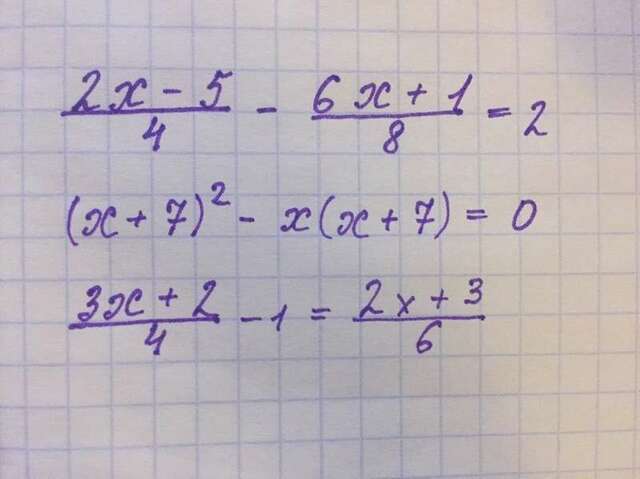 (2x - 5)/4 - (6x + 1)/8 = 2
(x + 7)² - x(x + 7) = 0
(3x + 2)/4 - 1 = (2x + 3)/6